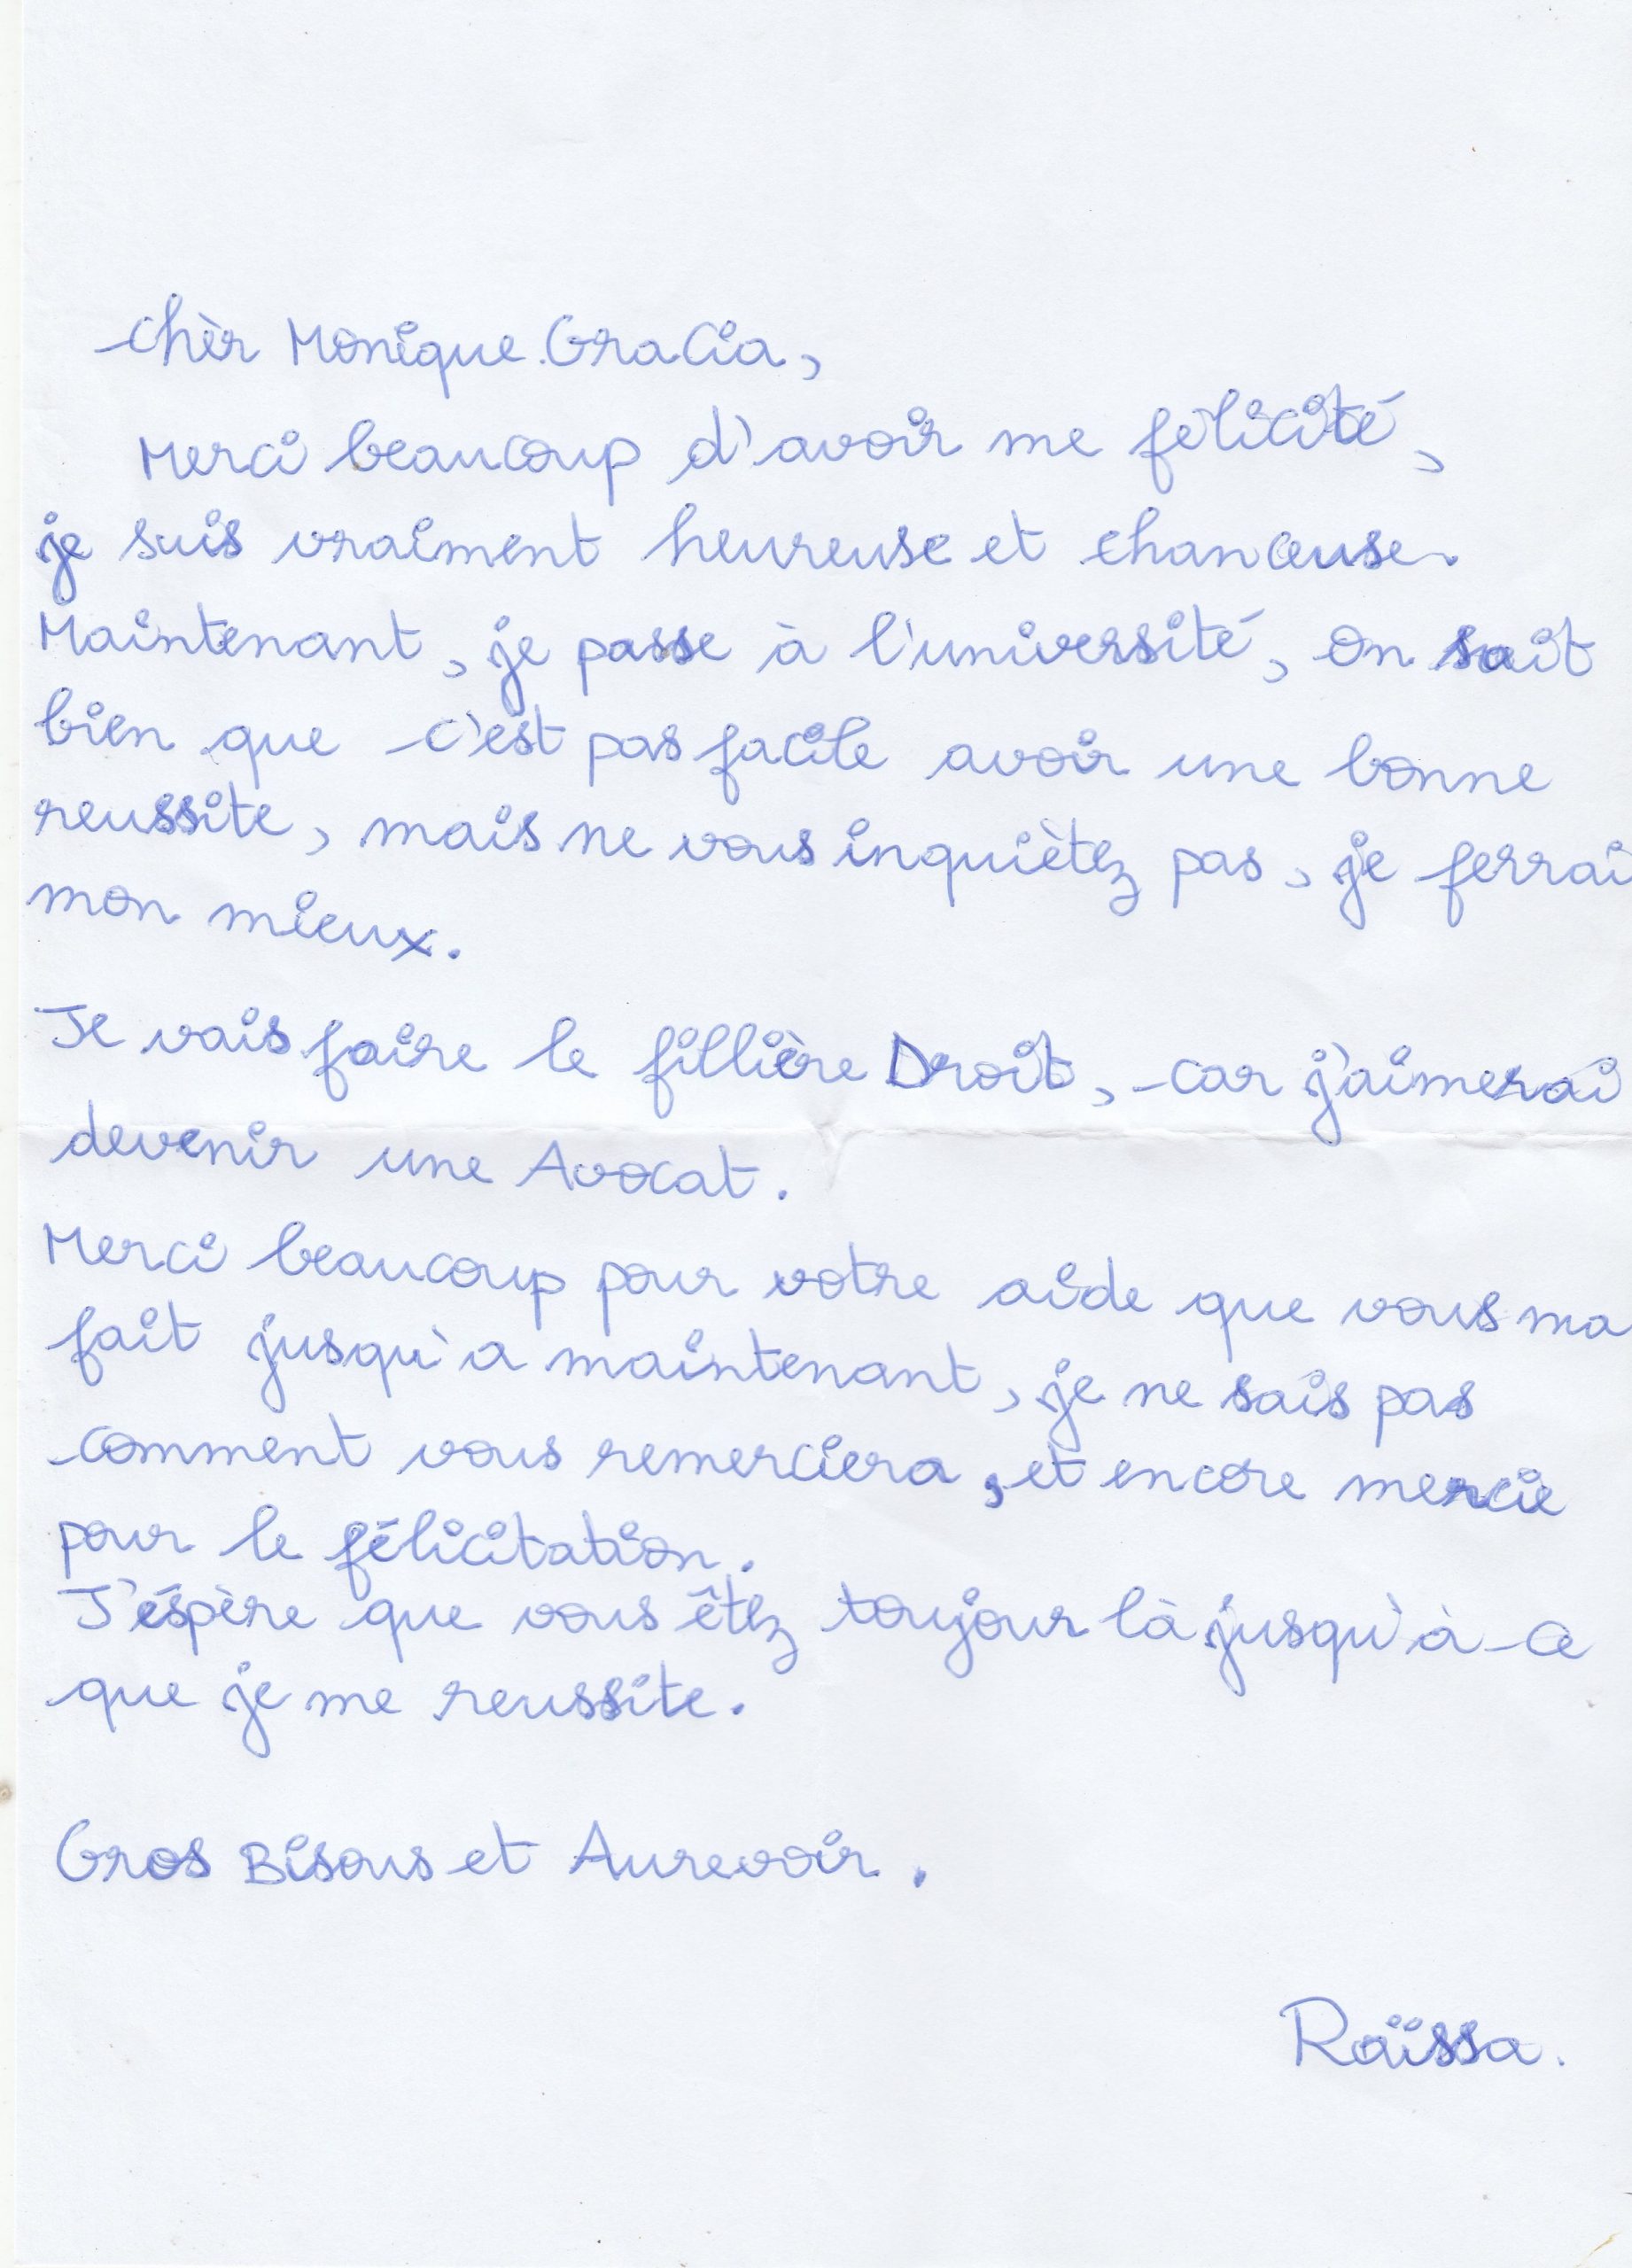 Chèr Monique Gracia,
Merci beaucoup d'avoir me félicité,
je suis vraiment heureuse et chanceuse.
Maintenant, je passe à l'université, on sait
bien que c'est pas facile avoir une bonne
reussite, mais ne vous inquiètez pas, je ferrai
mon mieux.
Je vais faire le fillière Droit, car j'aimerai
devenir une Avocat.
Merci beaucoup pour votre aide que vous ma
fait jusqu'a maintenant, je ne sais pas
comment vous remerciera, et encore mercie
pour le félicitation.
J'éspère que vous êtez toujour là jusqu'à ce
que je me reussite.
Gros Bisous et Aurevoir.
Raïssa.